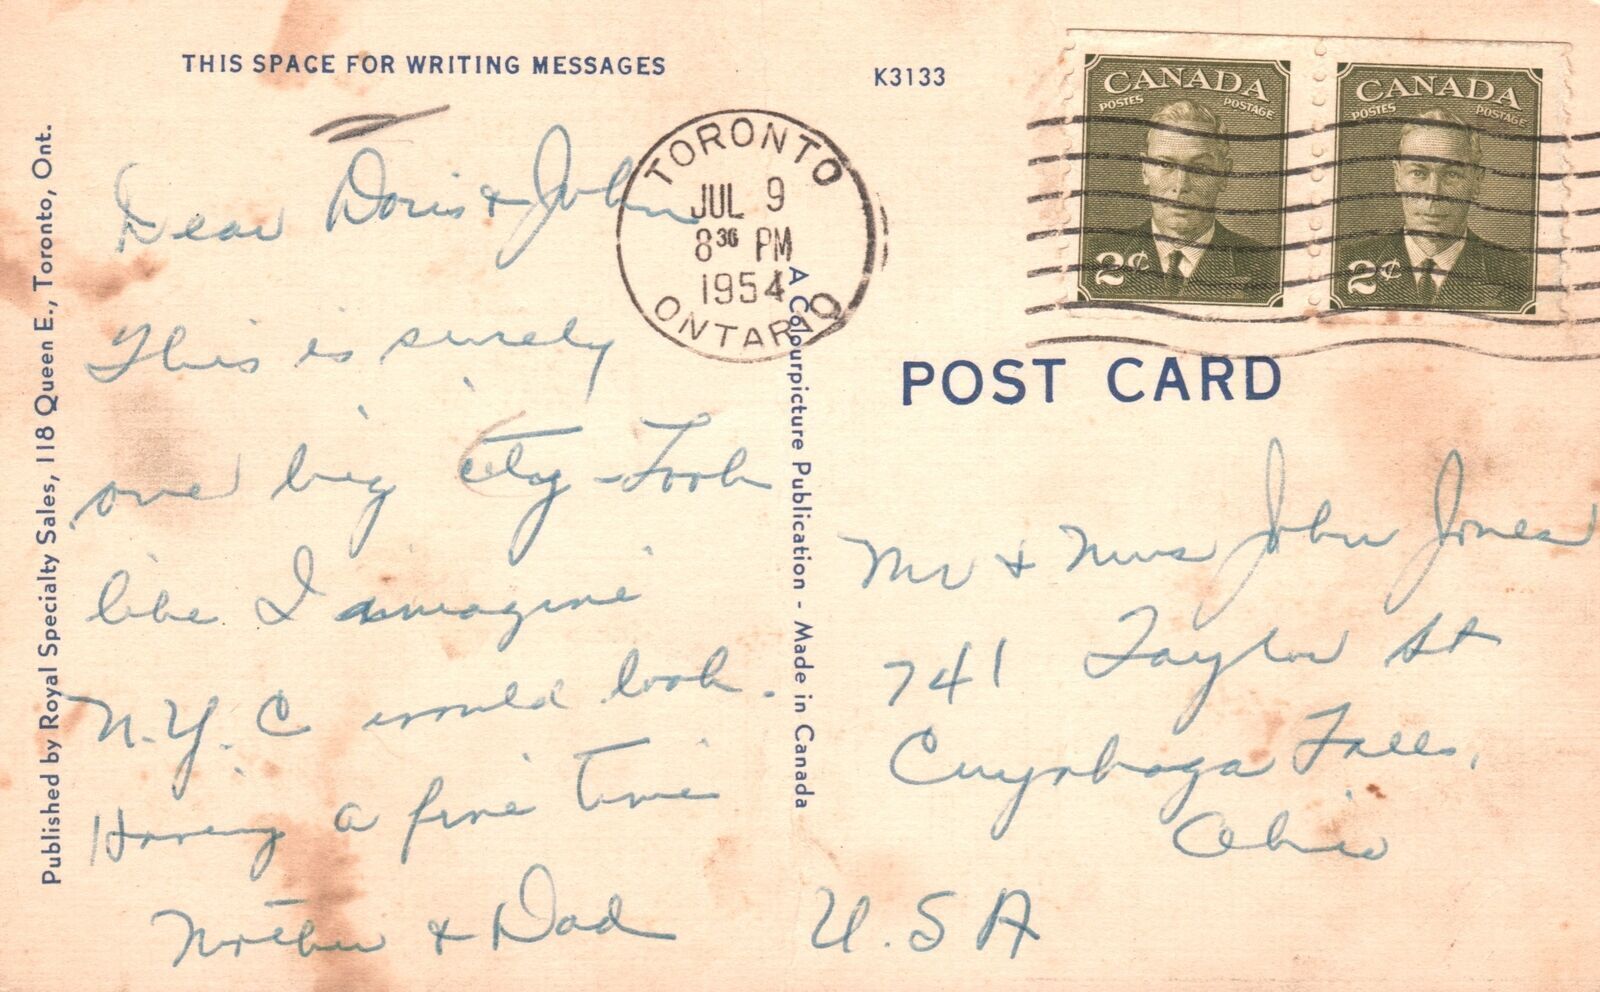 THIS SPACE FOR WRITING MESSAGES
K3133
Published by Royal Specialty Sales, 118 Queen E., Toronto, Ont.
Dear Doris & John
This is surely
one big city - Look
like I imagine
N.Y.C would look.
Having a fine time
Mother & Dad
TORONTO
JUL 9
8 30 PM
1954
ONTARIO
A Colourpicture Publication - Made in Canada
CANADA
POSTES POSTAGE
2¢
CANADA
POSTES POSTAGE
2¢
POST CARD
Mr & Mrs John Jones
741 Taylor St
Cuyahoga Falls,
Ohio
U.S A